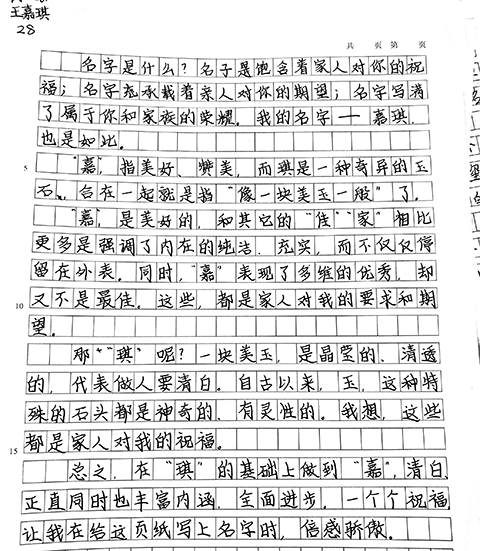 王嘉琪
28
共 页 第 页
名字是什么?名子是饱含着家人对你的祝
福;名字充承载着亲人对你的期望;名字写满
了属于你和家族的荣耀。我的名字——嘉琪.
也是如此。
5 "嘉",指美好、赞美,而琪是一种奇异的玉
石、合在一起就是指"像一块美玉一般"了。
"嘉",是美好的,和其它的"佳""家"相比
更多是强调了内在的纯洁、充实,而不仅仅停
留在外表。同时,"嘉"表现了多维的优秀,却
10 又不是最佳。这些,都是家人对我的要求和期
望。
那"琪"呢?一块美玉,是晶莹的、清透
的,代表做人要清白。自古以来,玉,这种特
殊的石头都是神奇的、有灵性的。我想,这些
15 都是家人对我的祝福。
总之,在"琪"的基础上做到"嘉",清白、
正直同时也丰富内涵,全面进步。一个个祝福,
让我在给这页纸写上名字时,倍感骄傲。